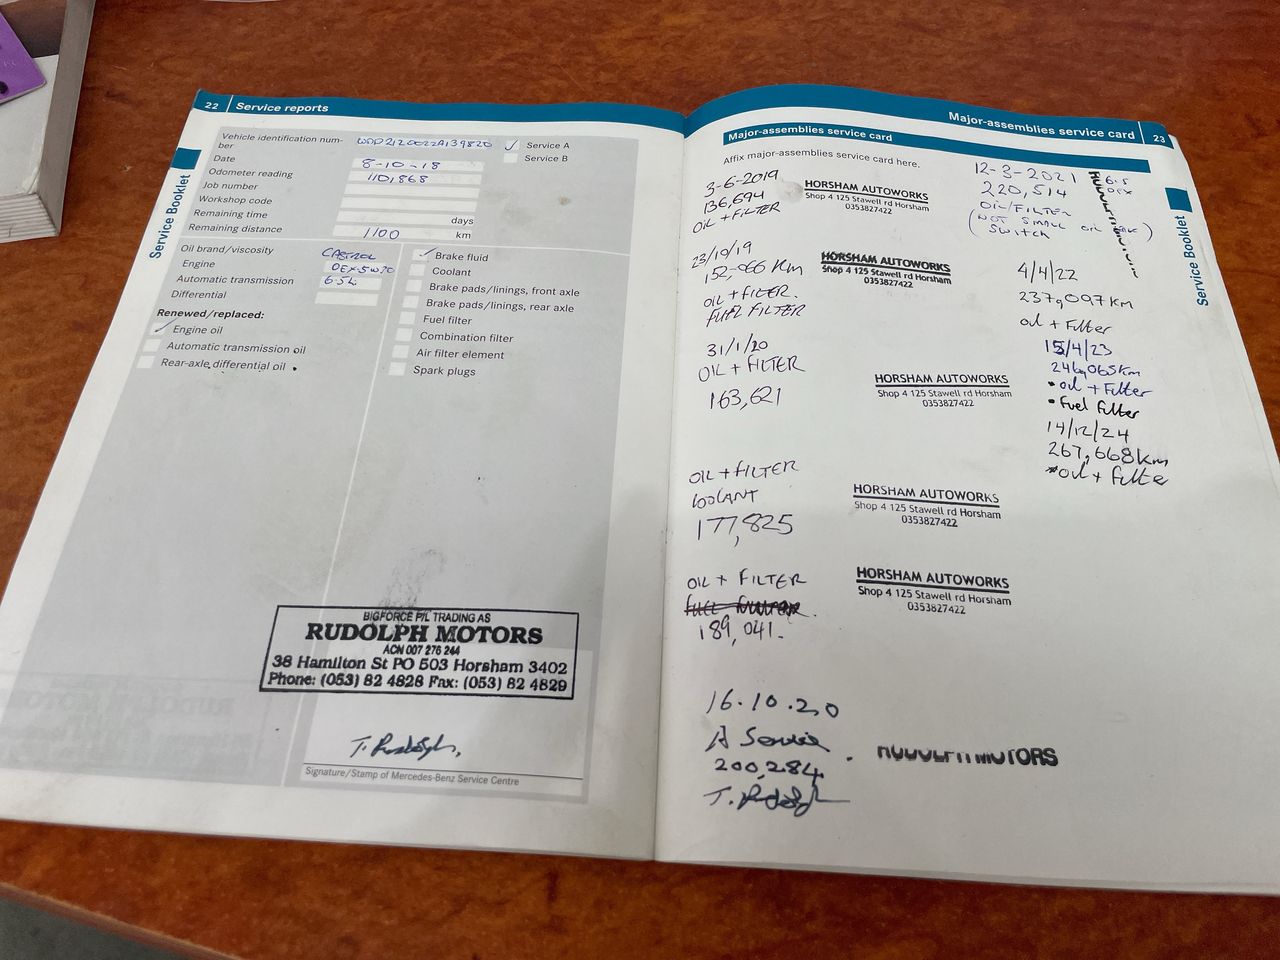 22 Service reports
Service Booklet
Vehicle identification num-
ber WDD2120022A139820
✓ Service A
Service B
Date 8-10-18
Odometer reading 110,868
Job number
Workshop code
Remaining time days
Remaining distance 1100 km
Oil brand/viscosity CASTROL
Engine OEX-5W30
Automatic transmission 6.5L
Differential
Renewed/replaced:
✓ Engine oil
Automatic transmission oil
Rear-axle differential oil
✓ Brake fluid
Coolant
Brake pads/linings, front axle
Brake pads/linings, rear axle
Fuel filter
Combination filter
Air filter element
Spark plugs
BIGFORCE P/L TRADING AS
RUDOLPH MOTORS
ACN 007 276 244
38 Hamilton St PO 503 Horsham 3402
Phone: (053) 82 4828 Fax: (053) 82 4829
T. Rudolph
Signature/Stamp of Mercedes-Benz Service Centre
Major-assemblies service card 23
Major-assemblies service card
Affix major-assemblies service card here.
Service Booklet
3-6-2019
136,694
OIL + FILTER
HORSHAM AUTOWORKS
Shop 4 125 Stawell rd Horsham
0353827422
23/10/19
152,066 KM
OIL + FILTER.
FUEL FILTER
HORSHAM AUTOWORKS
Shop 4 125 Stawell rd Horsham
0353827422
31/1/20
OIL + FILTER
163,621
HORSHAM AUTOWORKS
Shop 4 125 Stawell rd Horsham
0353827422
OIL + FILTER
COOLANT
177,825
HORSHAM AUTOWORKS
Shop 4 125 Stawell rd Horsham
0353827422
OIL + FILTER
189,041.
HORSHAM AUTOWORKS
Shop 4 125 Stawell rd Horsham
0353827422
16.10.20
A Service
200,284
T. Rudolph
RUDOLPH MOTORS
12-3-2021
220,514
OIL/FILTER
(NOT SMALL OIL
SWITCH)
6.5
OEX
4/4/22
237,097KM
oil + Filter
15/4/23
246,065km
• oil + Filter
• Fuel Filter
14/12/24
267,668km
• oil + Filter